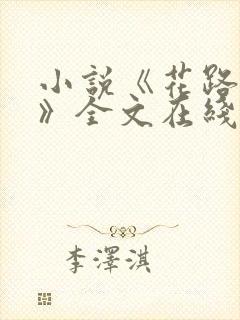 小説《花路
》全文在綫
李澤淇